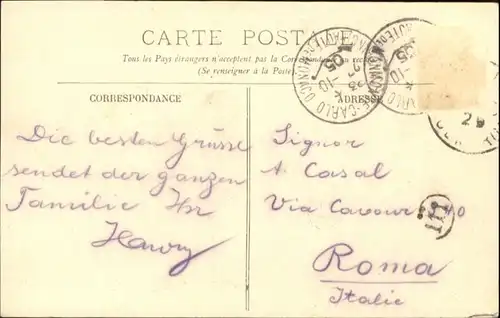 CARTE POSTALE
Tous les Pays étrangers n'acceptent pas la Correspondance au recto
(Se renseigner à la Poste)
CORRESPONDANCE
ADRESSE
Die besten Grüsse
sendet der ganzen
Familie Ihr
Harry
Signor
A. Casal
Via Cavour 40
Roma
Italie
MONTE-CARLO
05